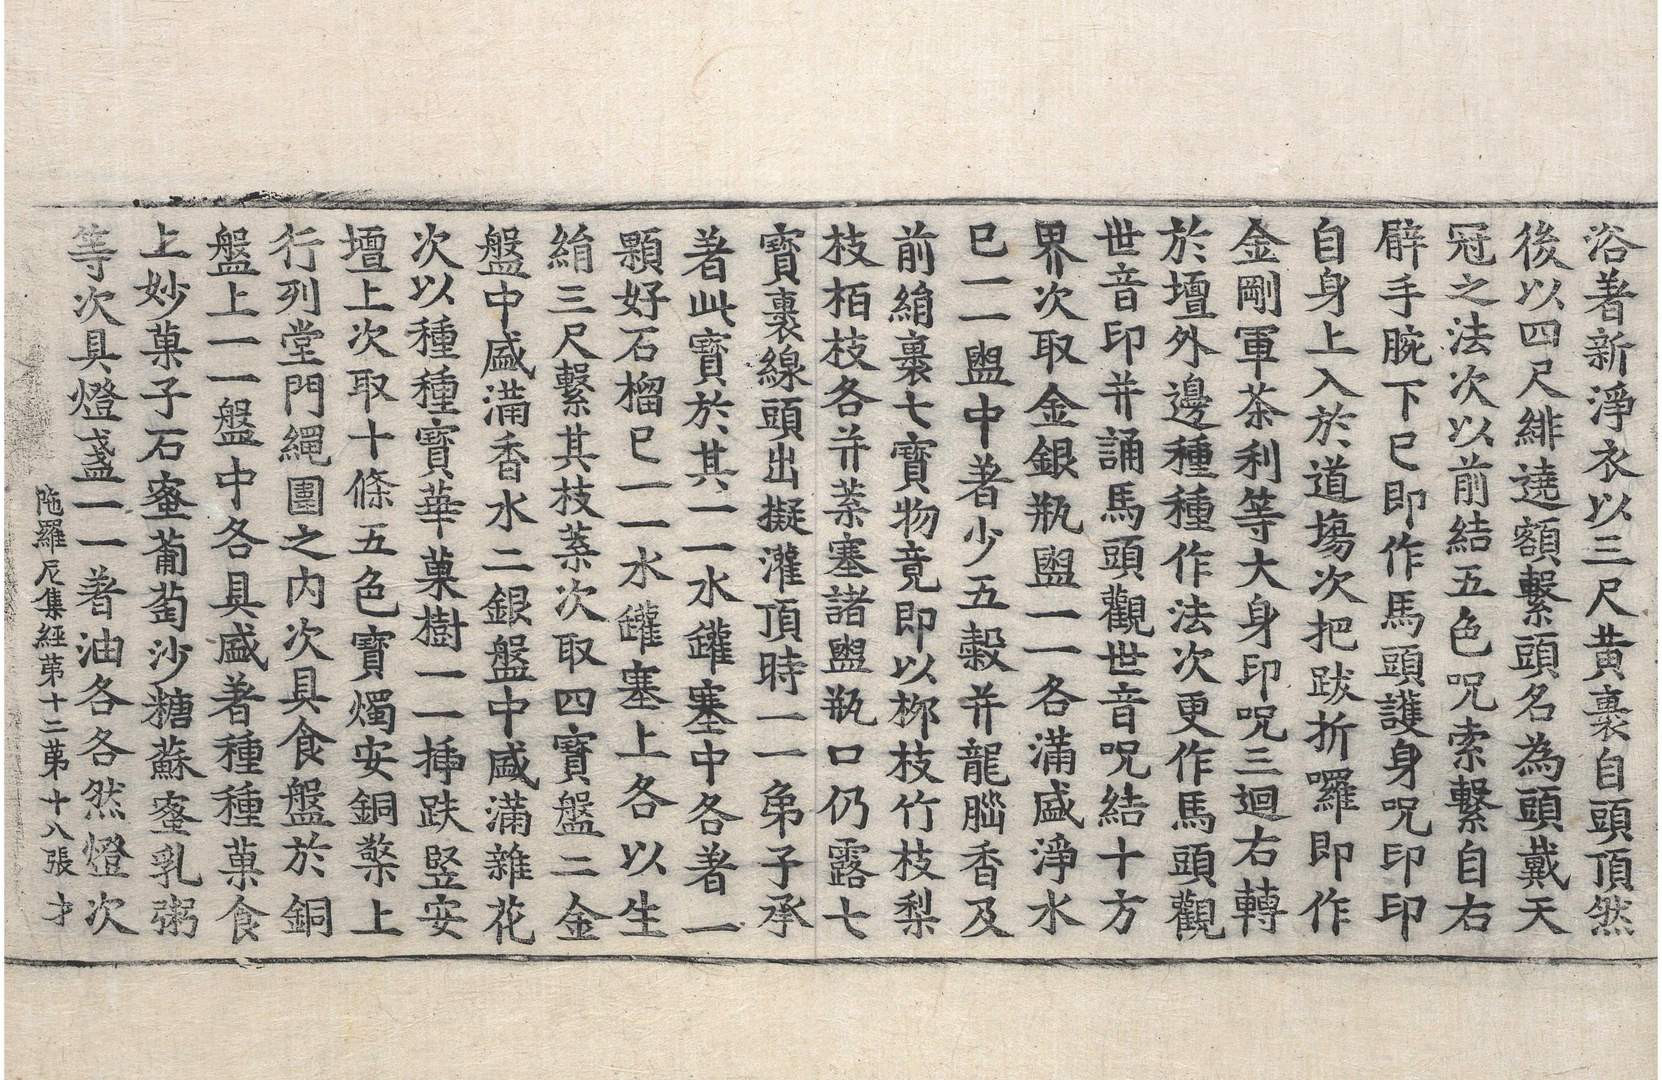 浴著新淨衣以三尺黃裹自頭頂然
後以四尺緋遶額繫頭名為頭戴天
冠之法次以前結五色呪索繫自右
臂手腕下已即作馬頭護身呪印印
自身上入於道場次把跋折囉即作
金剛軍荼利等大身印呪三迴右轉
於壇外邊種種作法次更作馬頭觀
世音印并誦馬頭觀世音呪結十方
界次取金銀瓶盥一一各滿盛淨水
已一一盥中著少五穀并龍腦香及
前絹裹七寶物竟即以柳枝竹枝梨
枝栢枝各并葉塞諸盥瓶口仍露七
寶裹線頭出擬灌頂時一一弟子承
著此寶於其一一水罐塞中各著一
顆好石榴已一一水罐塞上各以生
絹三尺繫其枝葉次取四寶盤二金
盤中盛滿香水二銀盤中盛滿雜花
次以種種寶華菓樹一一插趺竪安
壇上次取十條五色寶燭安銅檠上
行列堂門繩圍之內次具食盤於銅
盤上一一盤中各具盛著種種菓食
上妙菓子石蜜葡萄沙糖蘇蜜乳粥
等次具燈盞一一著油各各然燈次
陁羅尼集經第十二第十八張 才